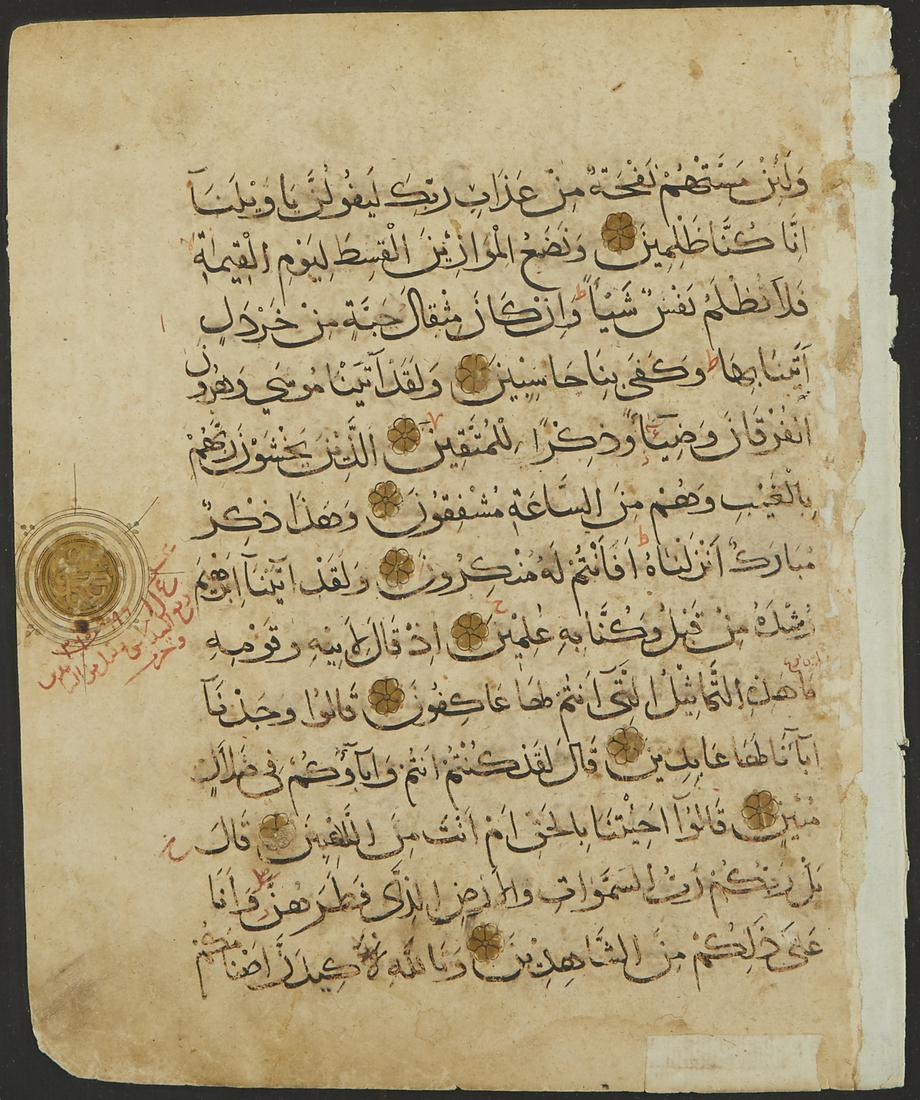 وَلَئِنْ مَسَّتْهُمْ نَفْحَةٌ مِنْ عَذَابِ رَبِّكَ لَيَقُولُنَّ يَا وَيْلَنَآ
اِنَّا كُنَّا ظٰلِمِينَ وَنَضَعُ الْمَوَازِيْنَ الْقِسْطَ لِيَوْمِ الْقِيٰمَةِ
فَلَا تُظْلَمُ نَفْسٌ شَيْـًٔا ط وَاِنْ كَانَ مِثْقَالَ حَبَّةٍ مِنْ خَرْدَلٍ
اَتَيْنَا بِهَا ط وَكَفَى بِنَا حَاسِبِينَ وَلَقَدْ آتَيْنَا مُوسَي وَهٰرُونَ
الْفُرْقَانَ وَضِيَآءً وَذِكْرًا لِلْمُتَّقِينَ الَّذِيْنَ يَخْشَوْنَ رَبَّهُمْ
بِالْغَيْبِ وَهُمْ مِنَ السَّاعَةِ مُشْفِقُونَ وَهَذَا ذِكْرٌ
مُبَارَكٌ اَنْزَلْنَاهُ ط اَفَاَنْتُمْ لَهُ مُنْكِرُونَ وَلَقَدْ اٰتَيْنَآ اِبْرٰهِيْمَ
رُشْدَهُ مِنْ قَبْلُ وَكُنَّا بِهِ عٰلِمْيْنَ اِذْ قَالَ لِاَبِيْهِ وَقَوْمِهِ
مَا هٰذِهِ التَّمَاثِيْلُ الَّتِيٓ اَنْتُمْ لَهَا عَاكِفُونَ قَالُوا وَجَدْنَآ
اٰبَآءَنَا لَهَا عَابِدِينَ قَالَ لَقَدْ كُنْتُمْ اَنْتُمْ وَاٰبَآؤُكُمْ فِي ضَلَالٍ
مُبِيْنٍ قَالُوٓا اَجِئْتَنَا بِالْحَقِّ اَمْ اَنْتَ مِنَ اللّٰعِبِيْنَ قَالَ
بَلْ رَبُّكُمْ رَبُّ السَّمٰوَاتِ وَالْاَرْضِ الَّذِي فَطَرَهُنَّ وَاَنَا
عَلَى ذٰلِكُمْ مِنَ الشَّاهِدِيْنَ وَتَاللّٰهِ لَاَكِيدَنَّ اَصْنَامَكُمْ